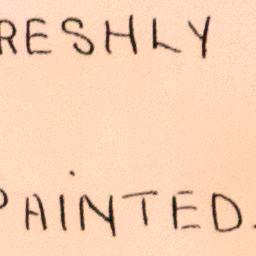 RESHLY
PAINTED.